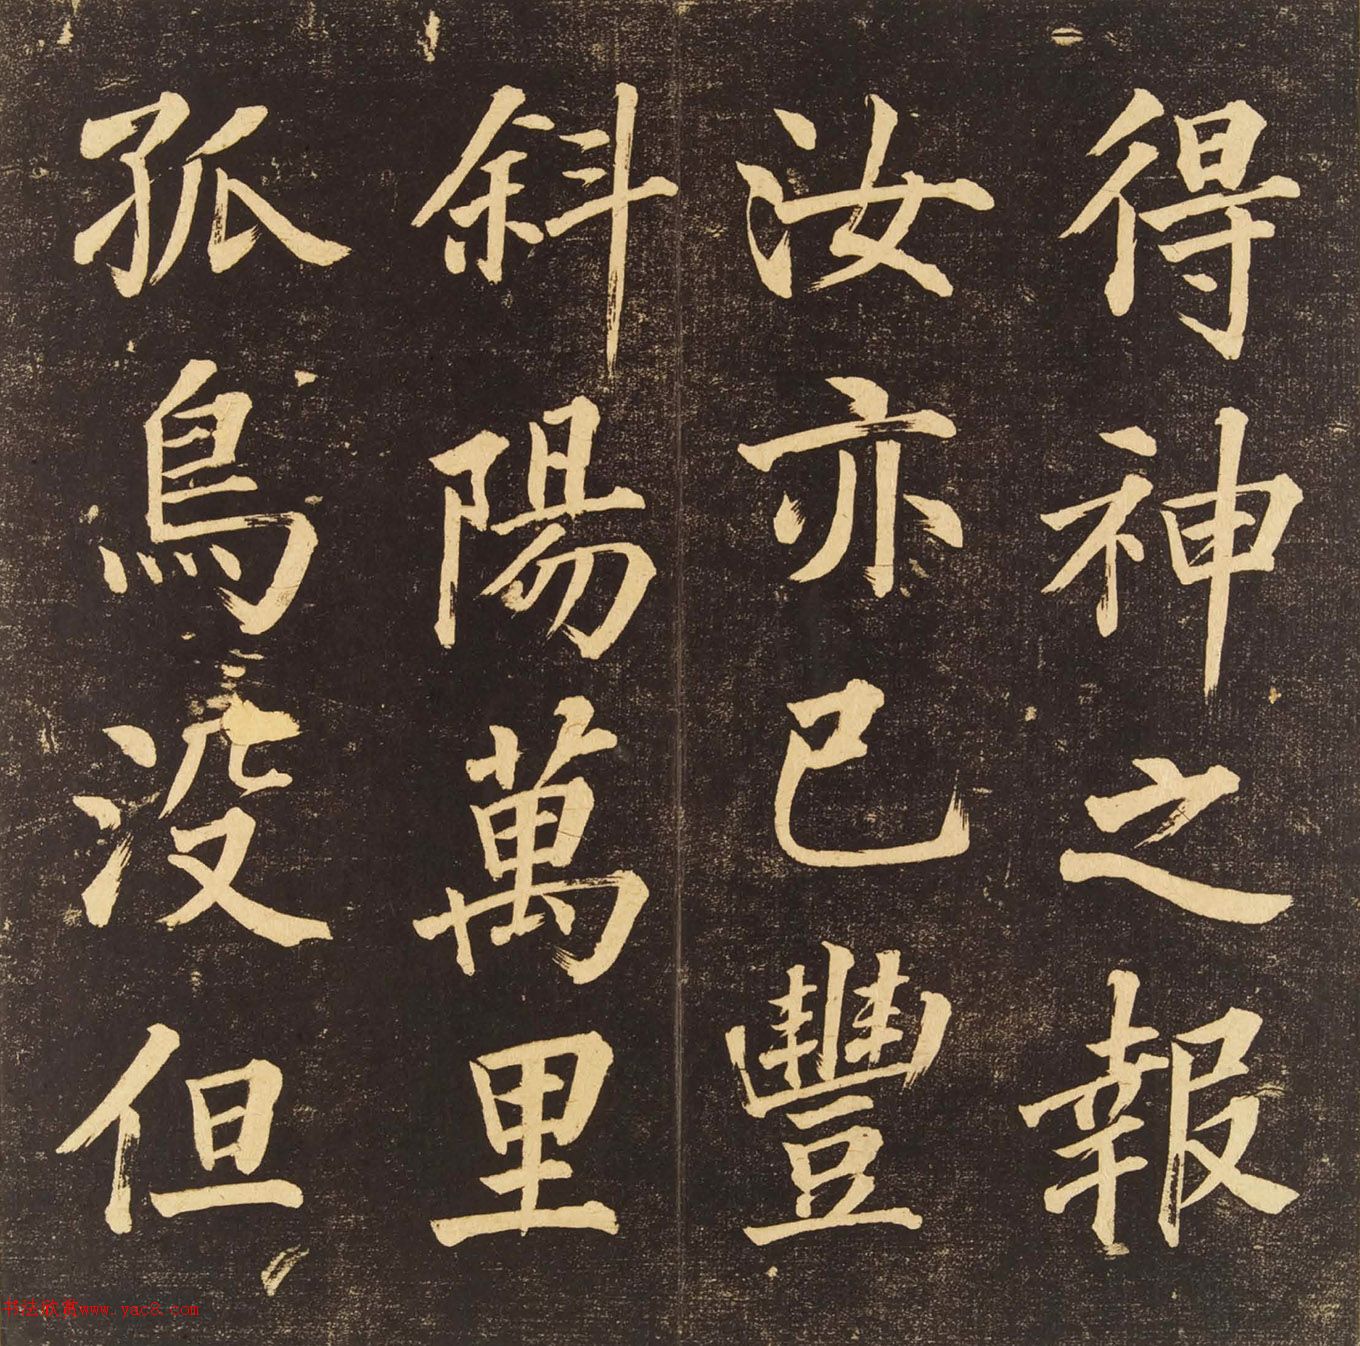 得神之報
汝亦已豐
斜陽萬里
孤鳥没但
书法欣赏www.yac8.com